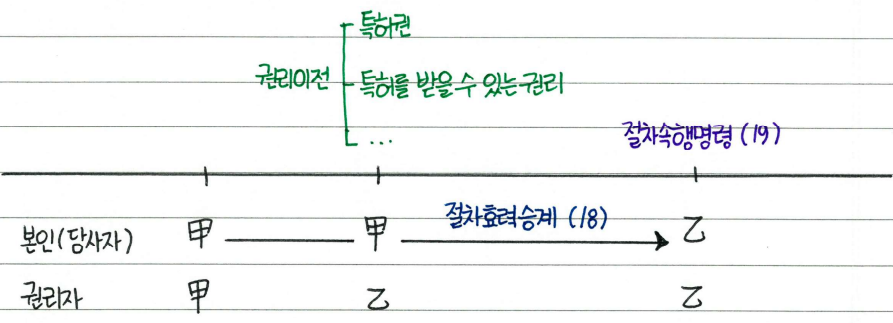 특허권
권리이전
특허를 받을 수 있는 권리
...
절차속행명령 (19)
본인(당사자) 甲 甲 절차효력승계 (18) 乙
권리자 甲 乙 乙